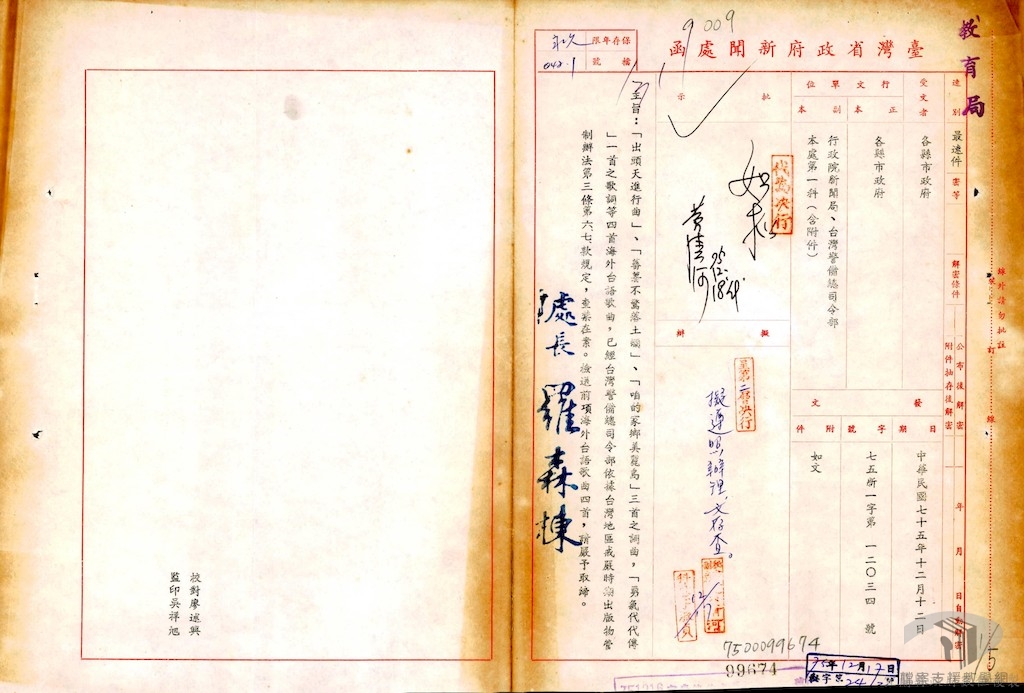 教育局
9009
臺灣省政府新聞處函
保存年限
永久
檔號
042.1
速別
最速件
密等
解密條件
公布後解密
附件抽存後解密
年月日自動解密
受文者
各縣市政府
行文單位
正本
各縣市政府
副本
行政院新聞局、台灣警備總司令部
本處第一科(含附件)
發文
日期
中華民國七十五年十二月十二日
字號
七五所一字第一二〇三四號
附件
如文
批示
代為決行
如擬
擬辦
擬遵照辦理,文存查。
12/17
主旨:「出頭天進行曲」、「蕃薯不驚落土爛」、「咱的家鄉美麗島」三首之詞曲,「勇氣代代傳
」一首之歌詞等四首海外台語歌曲,已經台灣警備總司令部依據台灣地區戒嚴時期出版物管
制辦法第三條第六、七款規定,查禁在案。檢送前項海外台語歌曲四首,請嚴予取締。
處長 羅森棟
校對廖述興
監印吳祥旭
線外請勿批註
裝訂線
7500099674
99674
75年12月17日
1/5